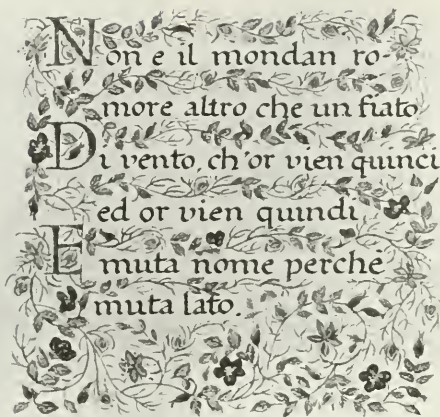 Non e il mondan ro-
more altro che un fiato
Di vento, ch'or vien quinci
ed or vien quindi
E muta nome perche
muta lato.